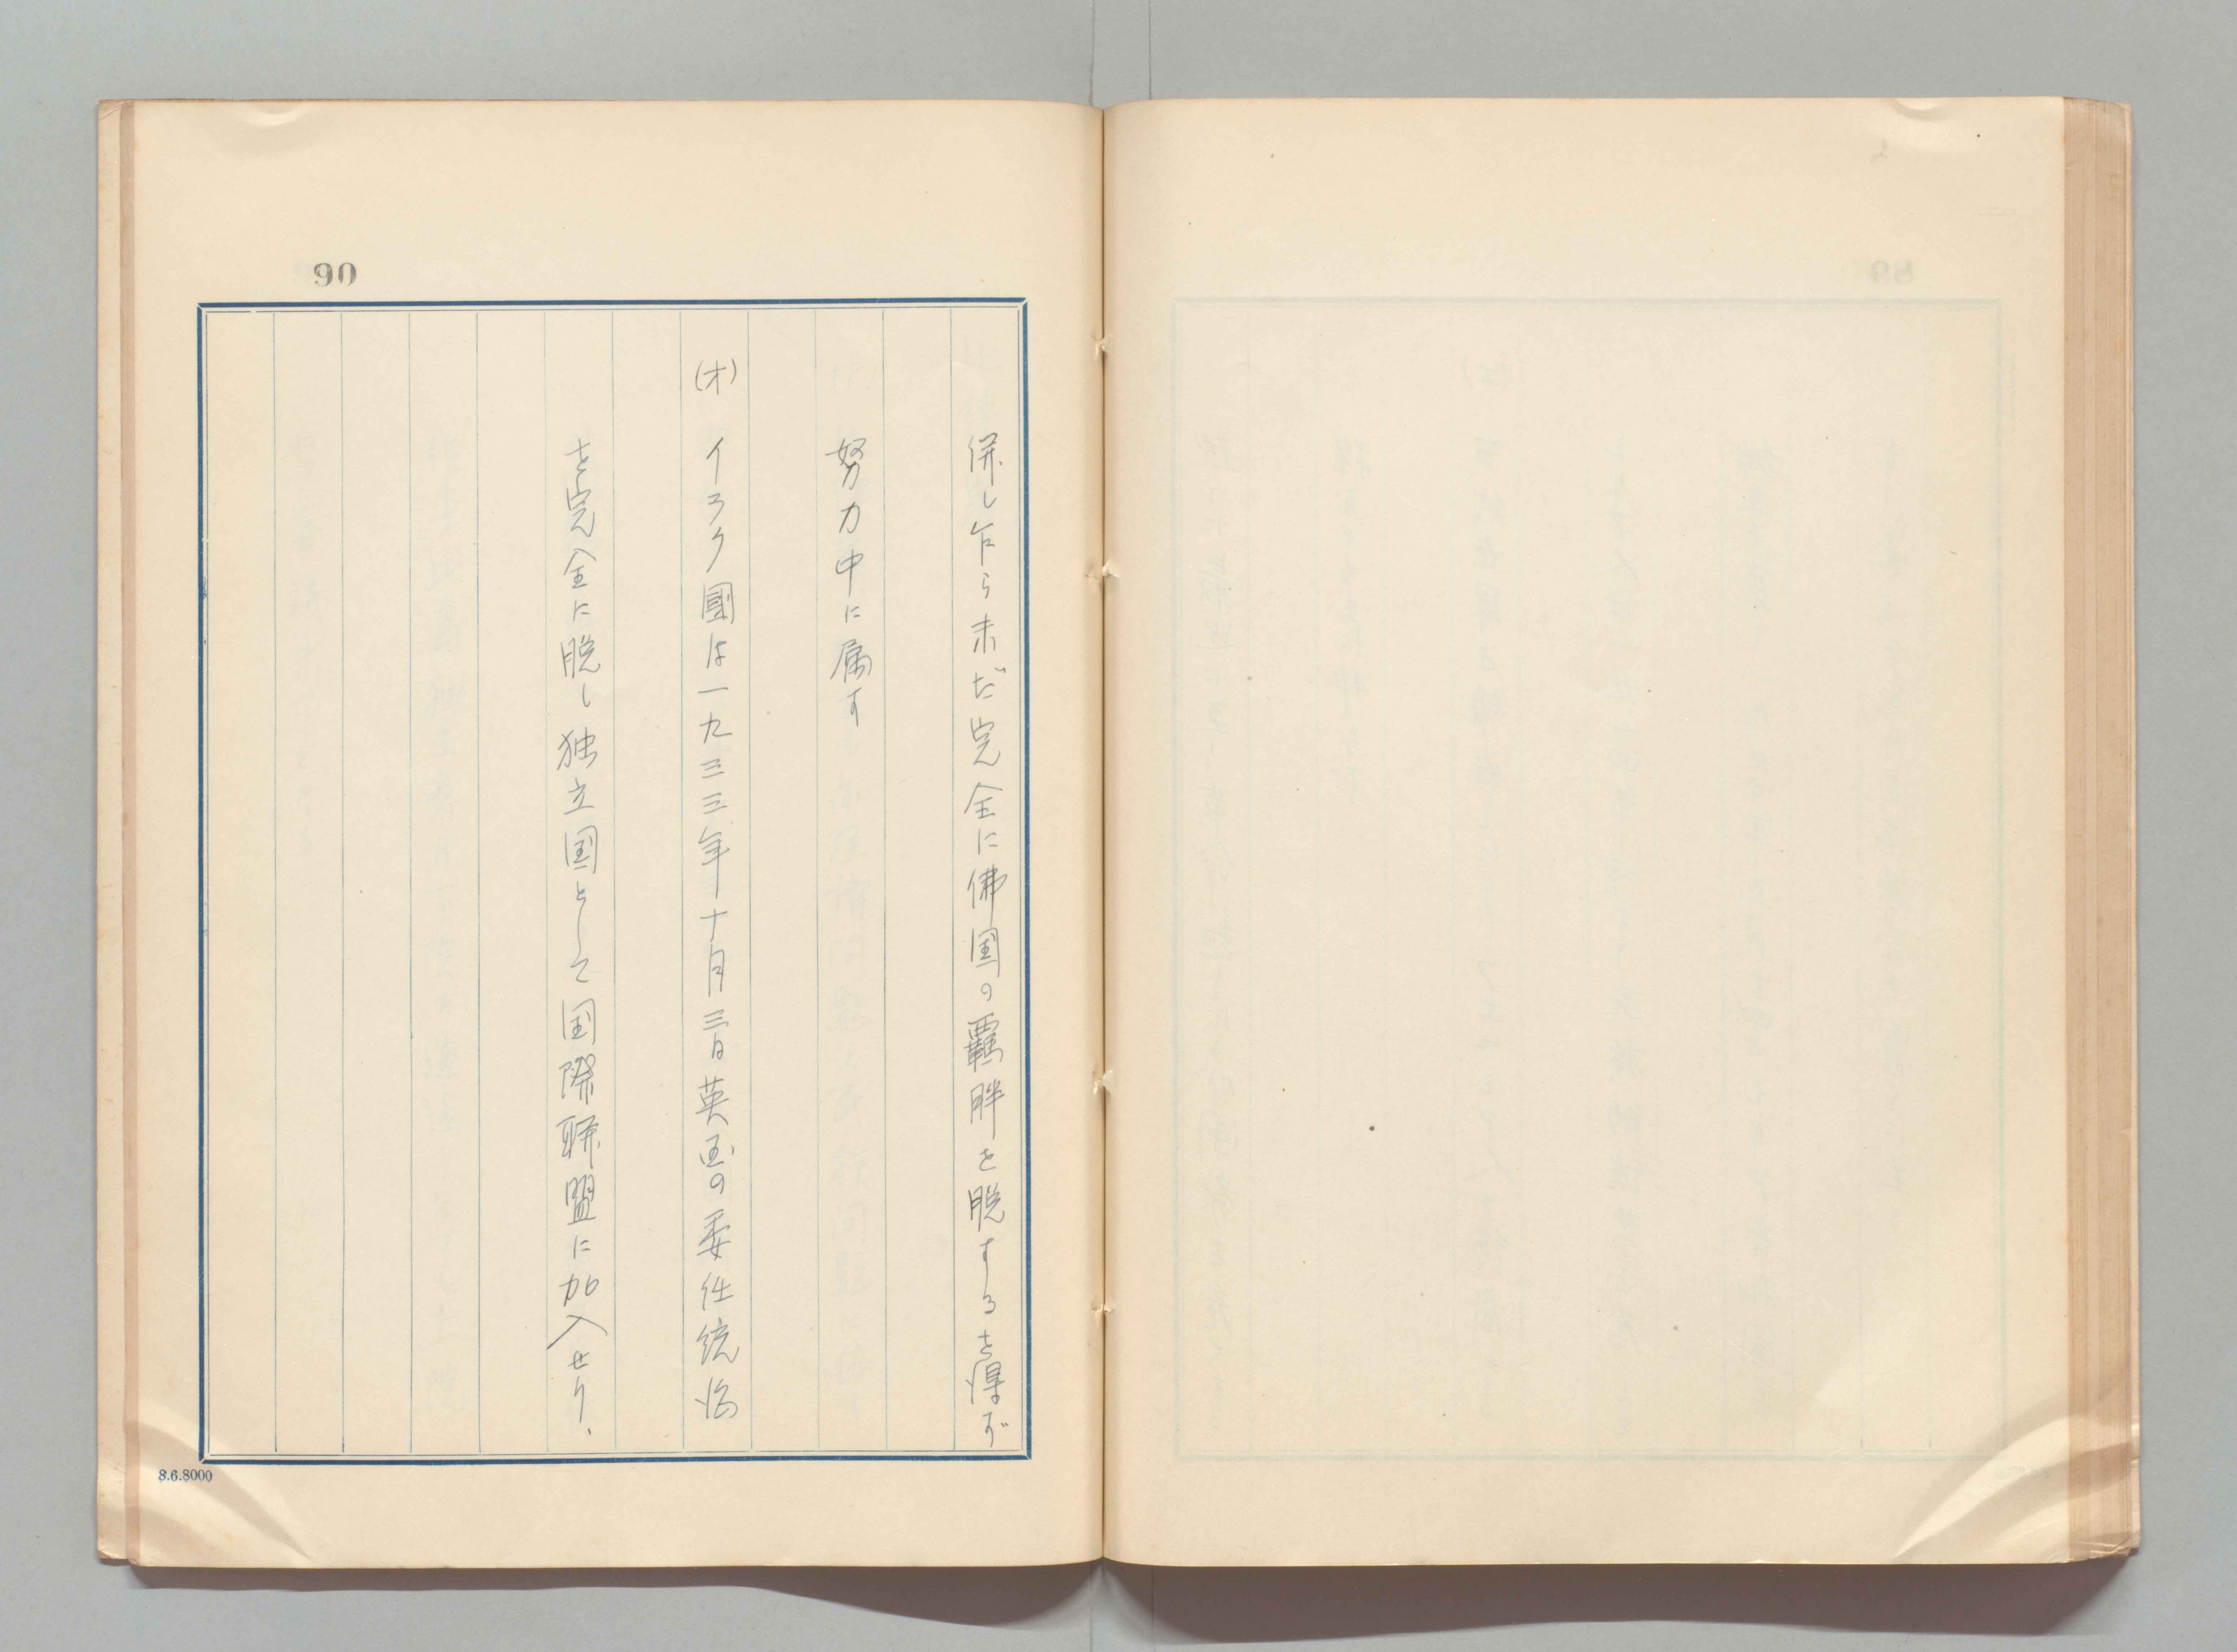 90
併し乍ら未だ完全に佛国の羈絆を脱するを得ず
努力中に属す
(オ) イラク國は一九三三年十月三日英国の委任統治
を完全に脱し独立国として国際聯盟に加入せり、
8.6.8000